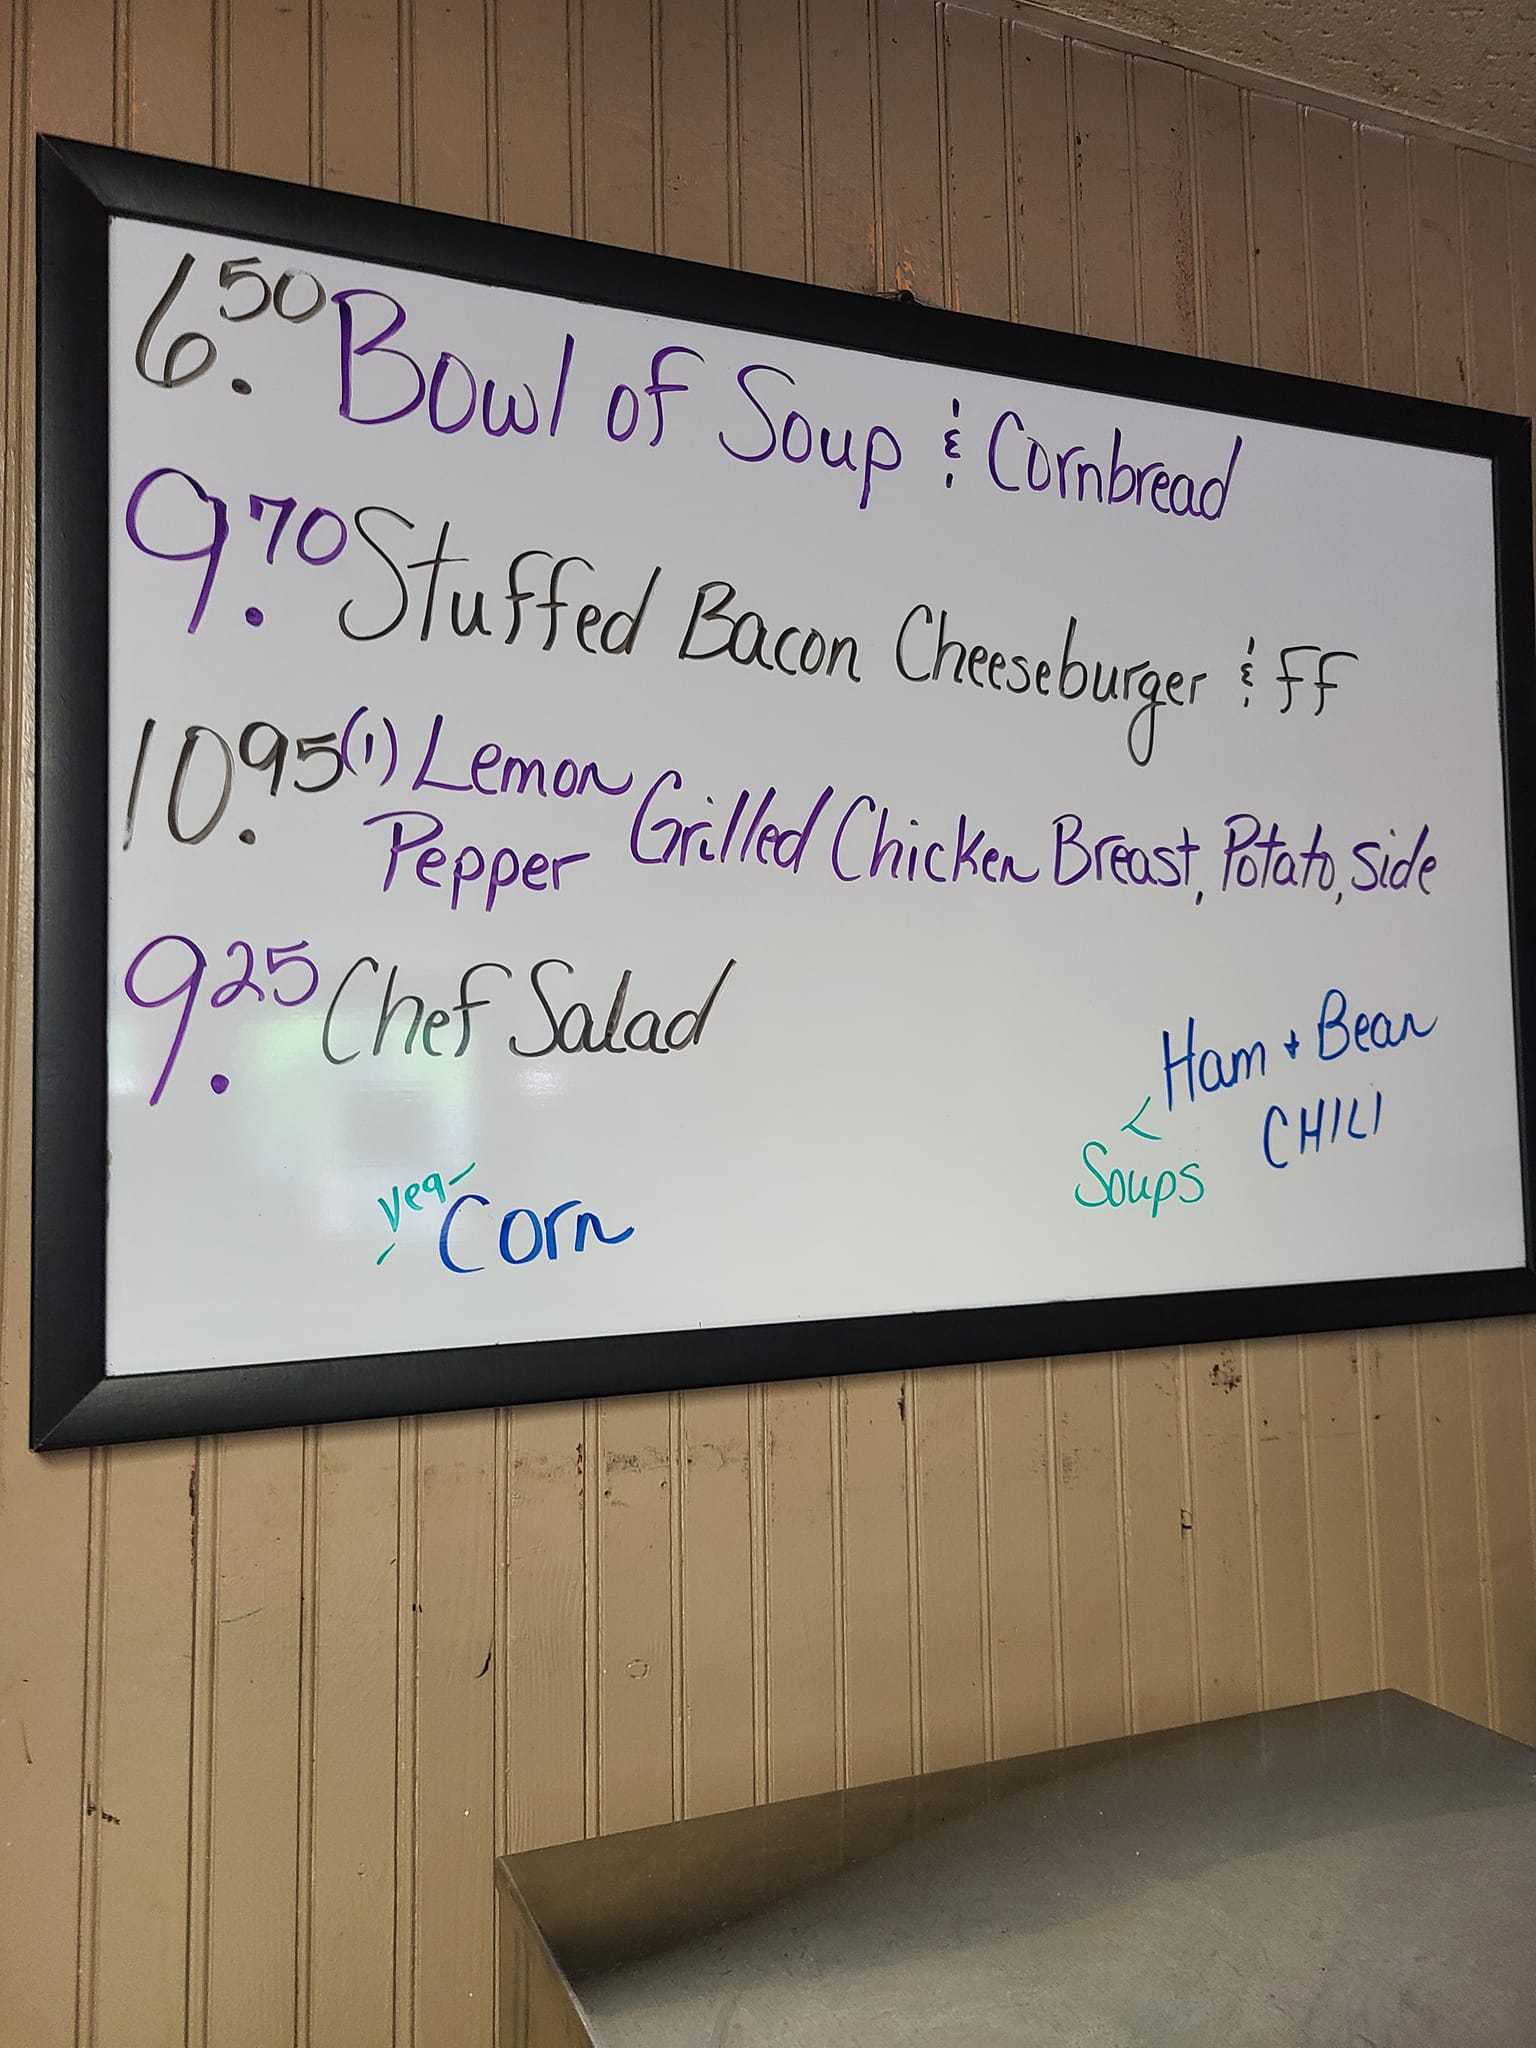 6.50 Bowl of Soup & Cornbread
9.70 Stuffed Bacon Cheeseburger & FF
10.95 (1) Lemon Pepper Grilled Chicken Breast, Potato, Side
9.25 Chef Salad
Veg- Corn
Soups < Ham + Bean
CHILI